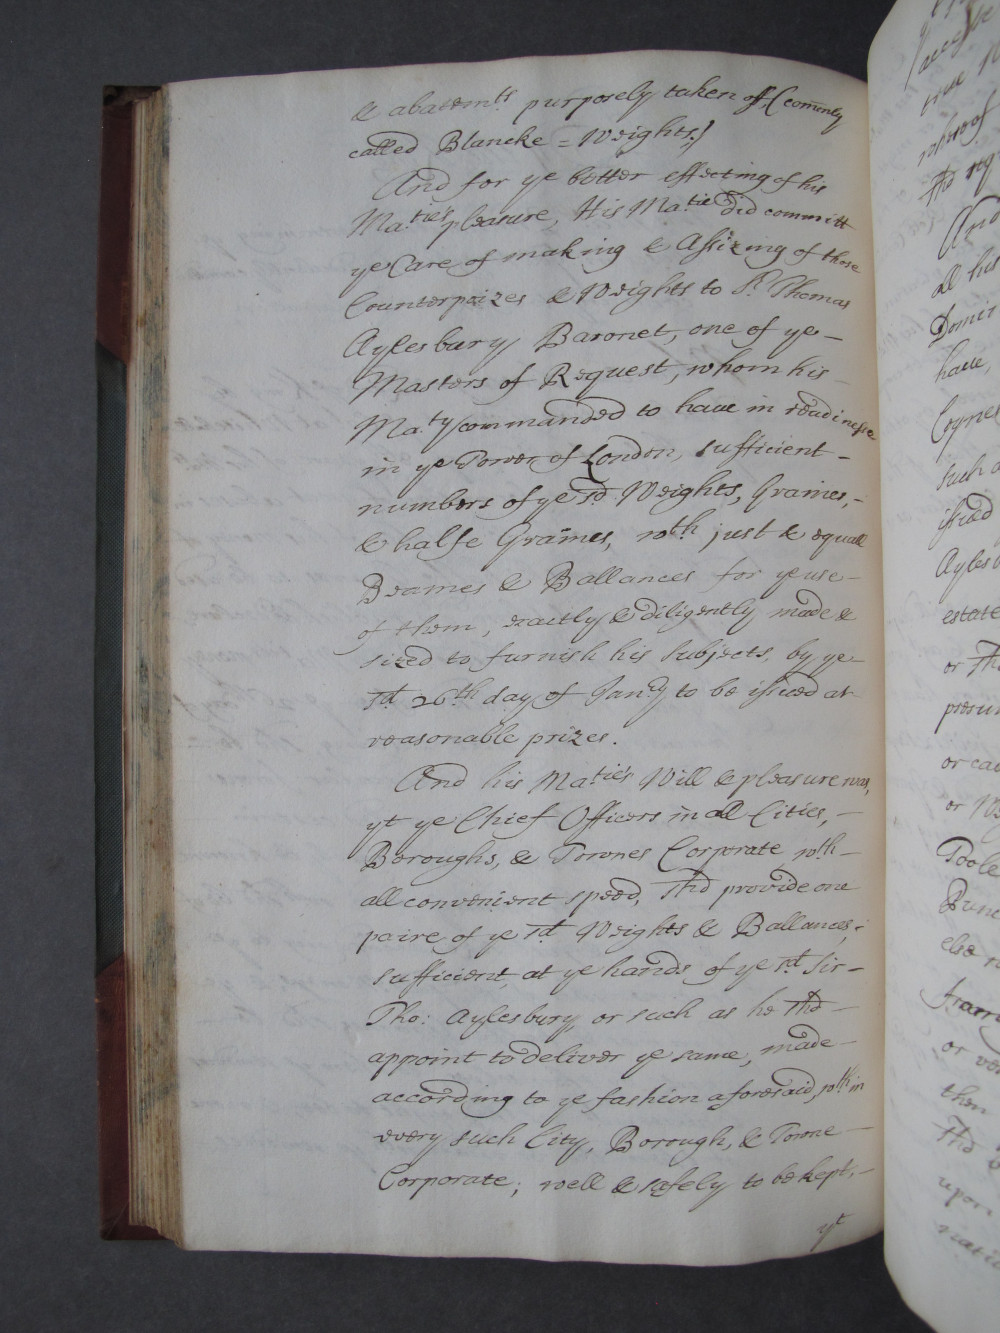 & abatemts purposely taken off, (comonly
called Blancke = Weights)
And for ye better effecting of his
Ma:ties pleasure, His Ma:tie did committ
ye Care of making & Assizing of those
Counterpoizes & Weights to Sr. Thomas
Aylesbury Baronet, one of ye –
Masters of Request, whom his –
Ma:ty commanded to haue in readinesse
in ye Tower of London, sufficient –
numbers of ye sd. Weights, Graines, –
& halfe Graines, wth just & equall
Beames & Ballances for ye use –
of them, exactly & diligently made &
sized to furnish his Subjects, by ye –
sd 26th day of Janry to be issued at
reasonable prizes.
And his Maties Will & pleasure was,
yt ye Chief Officers in all Cities, –
Boroughs, & Townes Corporate wth –
all convenient speed, shd provide one
paire of ye sd Weights & Ballances,
sufficient, at ye hands of ye sd Sir –
Tho: Aylesbury, or such as he shd –
appoint to deliver ye same, made –
according to ye fashion aforesaid, wth in
every such City, Borough, & Towne –
Corporate; well & safely to be kept, –
yt
And
all his
haue,
such a
issued
Aylesb
estate
or shd
presum
or cau
or
Toole
else
or
then
shd
upon